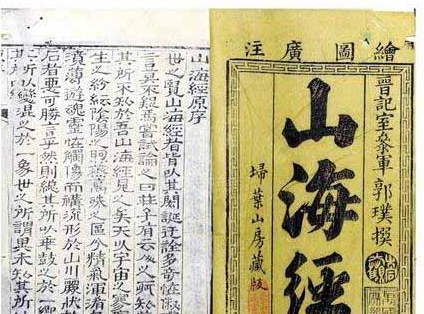 繪圖廣注
晉記室參軍郭璞撰
山海經
埽葉山房藏版
山海經原序
世之覽山海經者皆以其閎誕迂誇多奇怪俶
言莫不疑焉嘗試論之曰莊子有云人之所知
其所不知於吾山海經見之矣夫以宇宙之寥
生之紛紜陰陽之煦蒸萬殊之區分精氣渾淆
濆薄遊魂靈怪觸像而構流形於山川麗狀
石者惡可勝言乎然則總其所以乖鼓之於一響
其所以變混之於一象世之所謂異未知其所